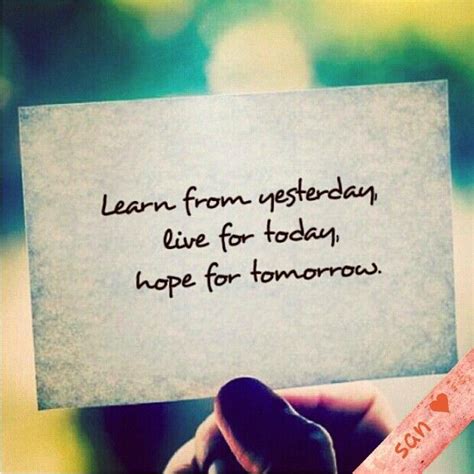 Learn from yesterday,
live for today,
hope for tomorrow.
san ♥